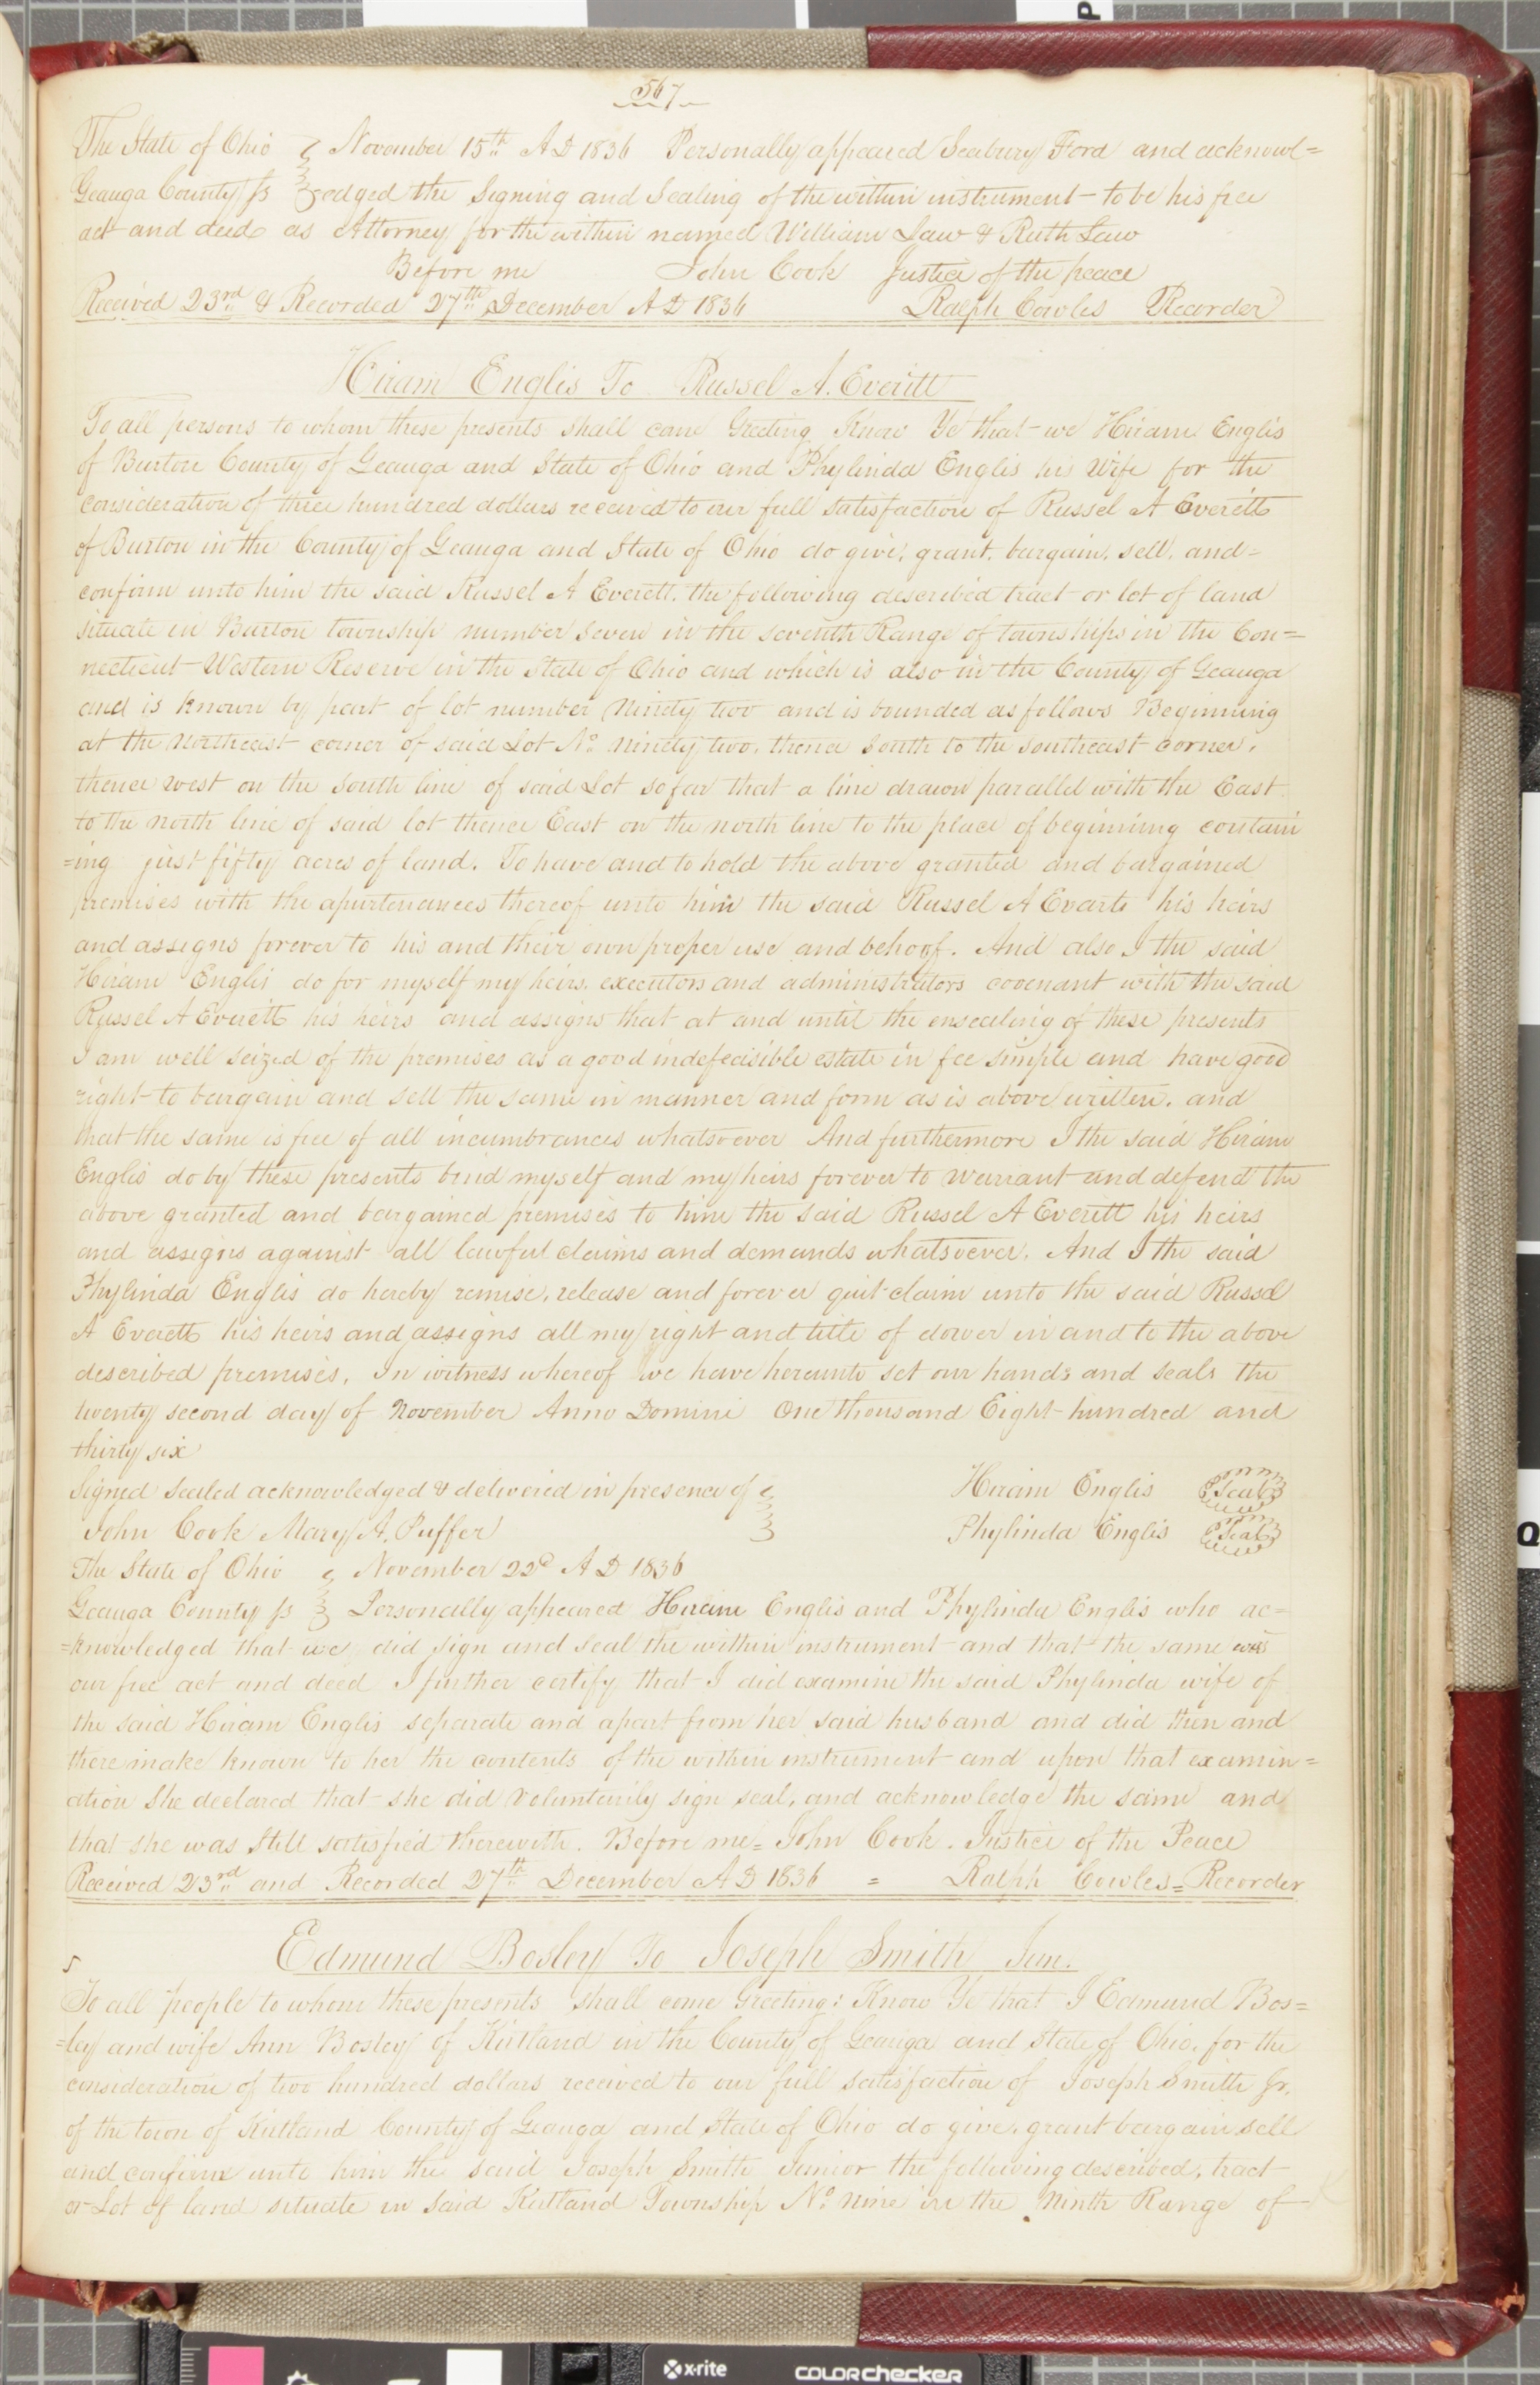 567
The State of Ohio November 15th A D 1836 Personally appeared Seabury Ford and acknowl=
Geauga County ss edged the Signing and Sealing of the within instrument to be his free
act and deed as Attorney for the within named William Law & Ruth Law
Before me John Cook Justice of the peace
Received 23rd & Recorded 27th December A D 1836 Ralph Cowles Recorder
Hiram Englis To Russel A. Everitt
To all persons to whom these presents shall come Greeting Know Ye that we Hiram Englis
of Burton County of Geauga and State of Ohio and Phylinda Englis his Wife for the
consideration of three hundred dollars received to our full satisfaction of Russel A Everett
of Burton in the County of Geauga and State of Ohio do give, grant, bargain, sell, and
confirm unto him the said Russel A Everett, the following described tract or lot of land
situate in Burton township number seven in the seventh Range of townships in the Con=
necticut Western Reserve in the State of Ohio and which is also in the County of Geauga
and is known by part of lot number Ninety two and is bounded as follows Beginning
at the Northeast corner of said Lot No Ninety two, thence South to the southeast corner,
thence west on the South line of said Lot so far that a line drawn parallel with the East
to the north line of said lot thence East on the north line to the place of beginning contain
=ing just fifty acres of land. To have and to hold the above granted and bargained
premises with the apurtenances thereof unto him the said Russel A Evarts his heirs
and assigns forever to his and their own proper use and behoof. And also I the said
Hiram Englis do for myself my heirs, executors and administrators covenant with the said
Russel A Everett his heirs and assigns that at and until the ensealing of these presents
I am well seized of the premises as a good indefeasible estate in fee simple and have good
right to bargain and sell the same in manner and form as is above written, and
that the same is free of all incumbrances whatsoever And furthermore I the said Hiram
Englis do by these presents bind myself and my heirs forever to warrant and defend the
above granted and bargained premises to him the said Russel A Everitt his heirs
and assigns against all lawful claims and demands whatsoever. And I the said
Phylinda Englis do hereby remise, release and forever quit-claim unto the said Russel
A Everett his heirs and assigns all my right and title of dower in and to the above
described premises. In witness whereof we have hereunto set our hands and seals the
twenty second day of November Anno Domini One thousand Eight hundred and
thirty six
Signed Sealed acknowledged & delivered in presence of Hiram Englis Seal
John Cook Mary A. Puffer Phylinda Englis Seal
The State of Ohio November 22d A D 1836
Geauga County ss Personally appeared Hiram Englis and Phylinda Englis who ac=
=knowledged that we did sign and seal the within instrument and that the same was
our free act and deed I further certify that I did examine the said Phylinda wife of
the said Hiram Englis separate and apart from her said husband and did then and
there make known to her the contents of the within instrument and upon that examin=
ation She declared that she did voluntarily sign seal, and acknowledge the same and
that she was Still satisfied therewith. Before me= John Cook. Justice of the Peace
Received 23rd and Recorded 27th December A D 1836 = Ralph Cowles= Recorder
Edmund Bosley To Joseph Smith Jun.
To all people to whom these presents shall come Greeting: Know Ye that I Edmund Bos=
=ley and wife Ann Bosley of Kirtland in the County of Geauga and State of Ohio, for the
consideration of two hundred dollars received to our full satisfaction of Joseph Smith Jr.
of the town of Kirtland County of Geauga and State of Ohio do give, grant bargain sell
and confirm unto him the said Joseph Smith Junior the following described, tract
or Lot of land situate in said Kirtland Township No nine in the Ninth Range of
x-rite colorchecker